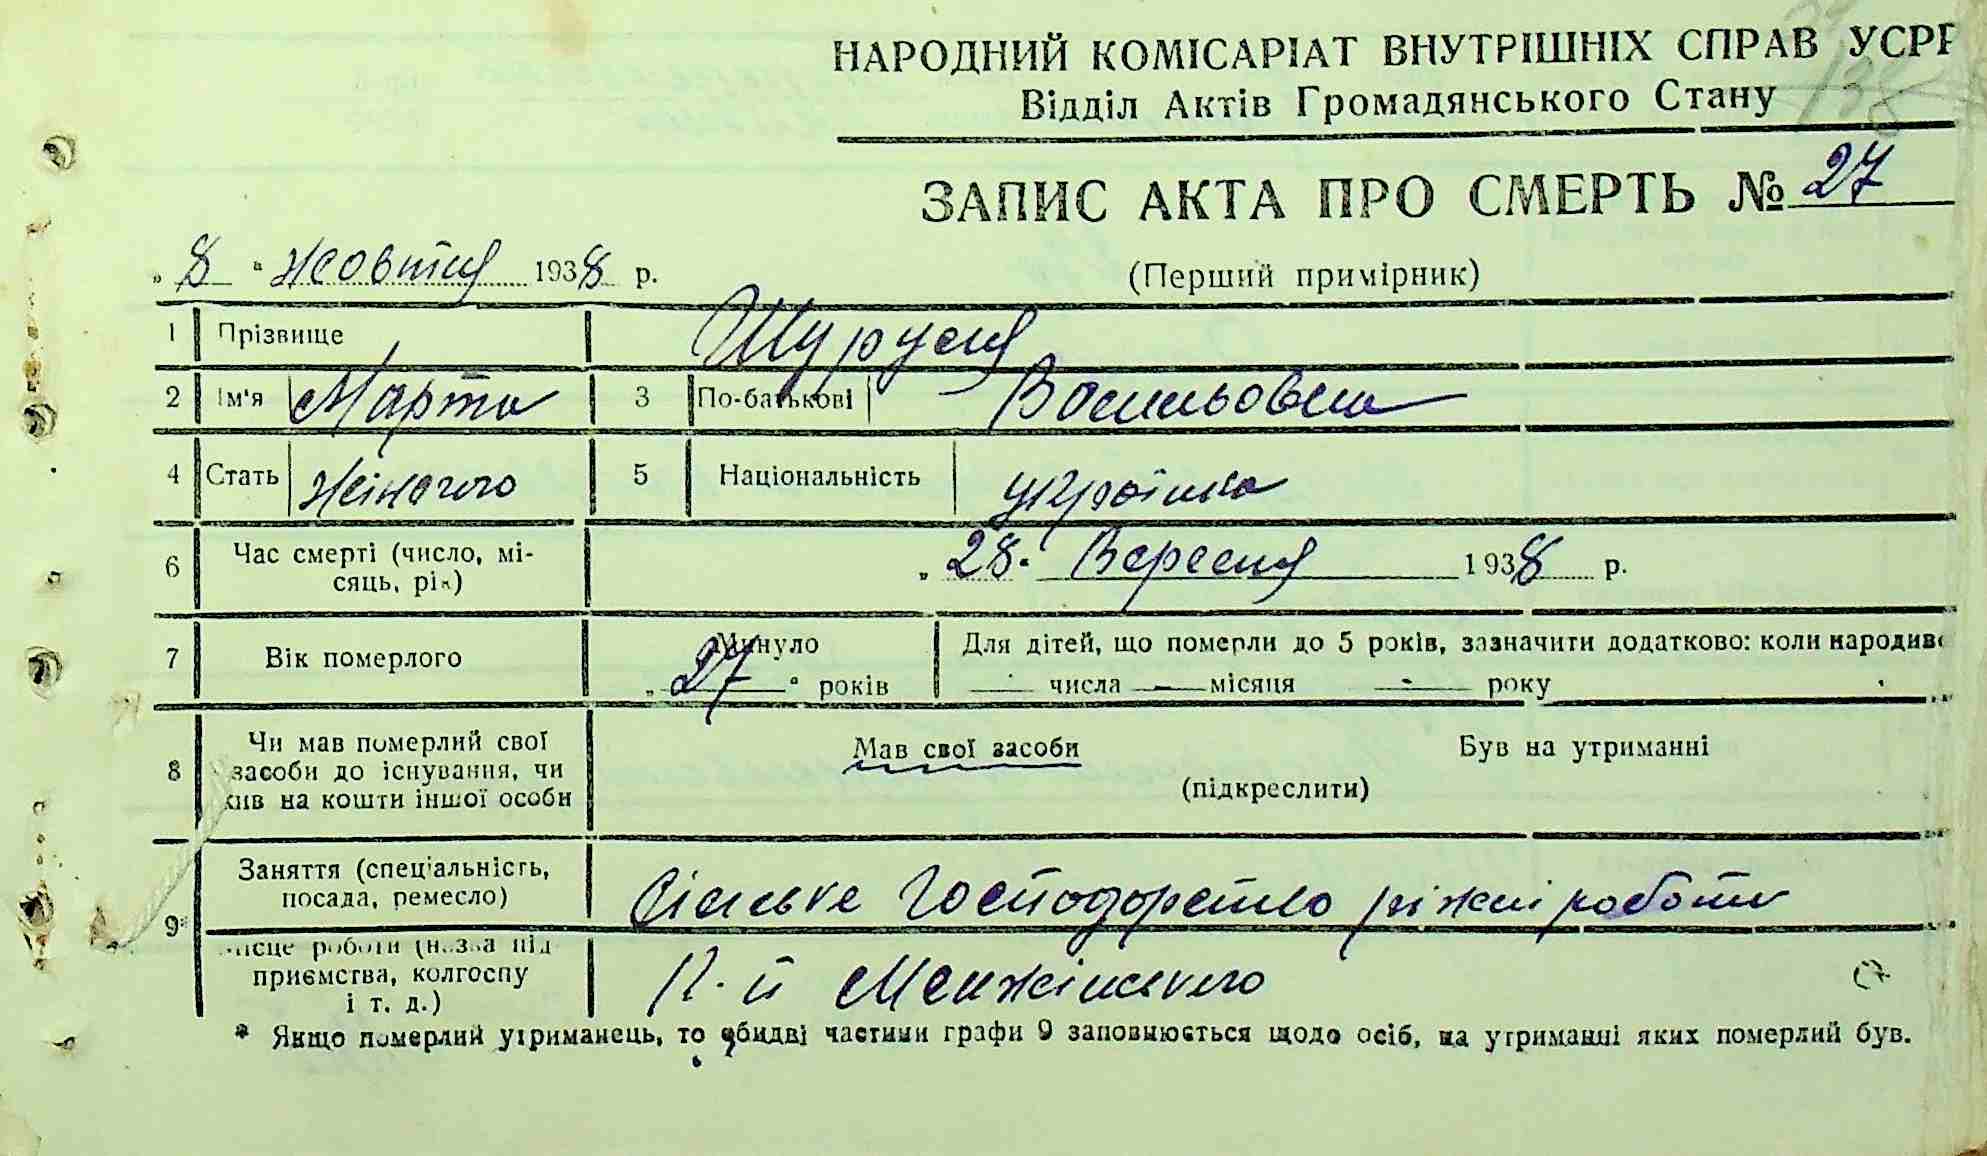 138
НАРОДНИЙ КОМІСАРІАТ ВНУТРІШНІХ СПРАВ УСРР
Відділ Актів Громадянського Стану
ЗАПИС АКТА ПРО СМЕРТЬ № 27
„ 8 “ жовтня 1938 р. (Перший примірник)
1 Прізвище
2 Ім'я Марта 3 По-батькові Васильовна
4 Стать жіночого 5 Національність українка
6 Час смерті (число, мі-
сяць, рік) „ 28. Вересня 1938 р.
7 Вік померлого Минуло Для дітей, що померли до 5 років, зазначити додатково: коли народивс
„ 27 “ років — числа — місяця — року
8 Чи мав померлий свої
засоби до існування, чи
жив на кошти іншої особи
Мав свої засоби Був на утриманні
(підкреслити)
9* Заняття (спеціальність,
посада, ремесло) Сільське Господарство ріжні роботи
Місце роботи (назва під
приємства, колгоспу
і т. д.) К-п Менжінського
* Якщо померлий утриманець, то обидві частини графи 9 заповнюється щодо осіб, на утриманні яких померлий був.